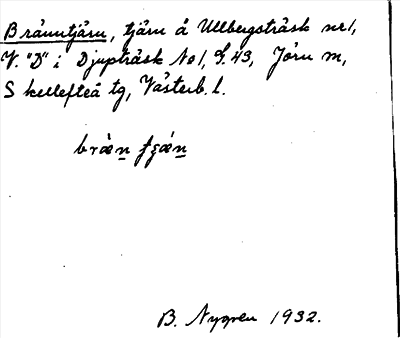 Brännтjärn, tjärn å Ullbergsträsk nr 1,
V. "D" i Djupträsk No 1, G. 43, Jörn m,
Skellefteå tg, Västerb. l.
bræ̀n tjæ̀n
B. Nygren 1932.